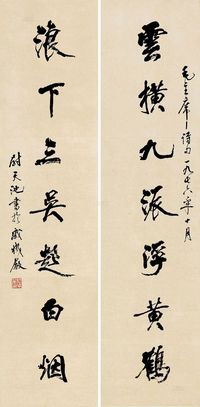 毛主席诗句一九七六年十月
雲橫九派浮黃鶴
浪下三吴起白烟
尉天池書於